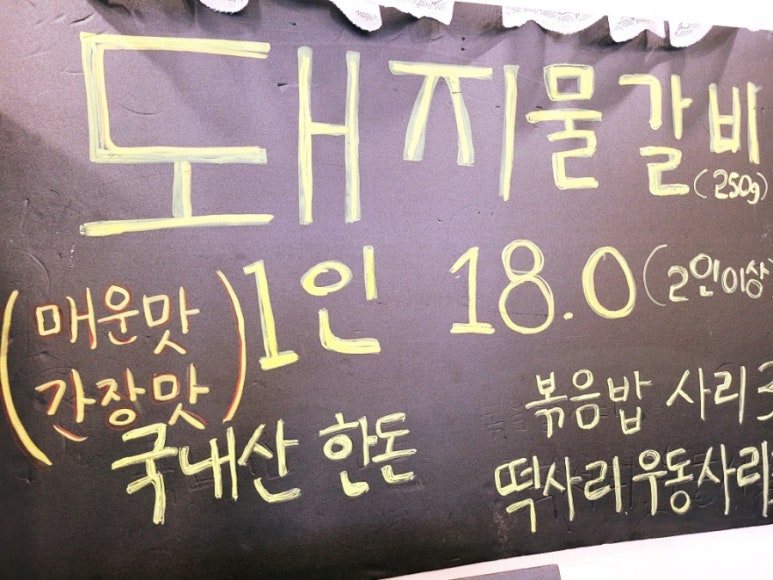 돼지물갈비 (250g)
(매운맛 간장맛) 1인 18.0 (2인이상)
국내산 한돈
볶음밥 사리 3
떡사리 우동사리